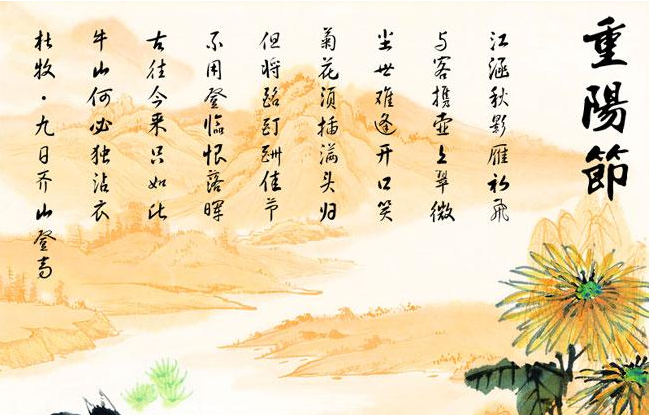 重陽節
江涵秋影雁初飛
与客携壶上翠微
尘世难逢开口笑
菊花须插满头归
但将酩酊酬佳节
不用登臨恨落晖
古往今来只如此
牛山何必独沾衣
杜牧·九日齐山登高